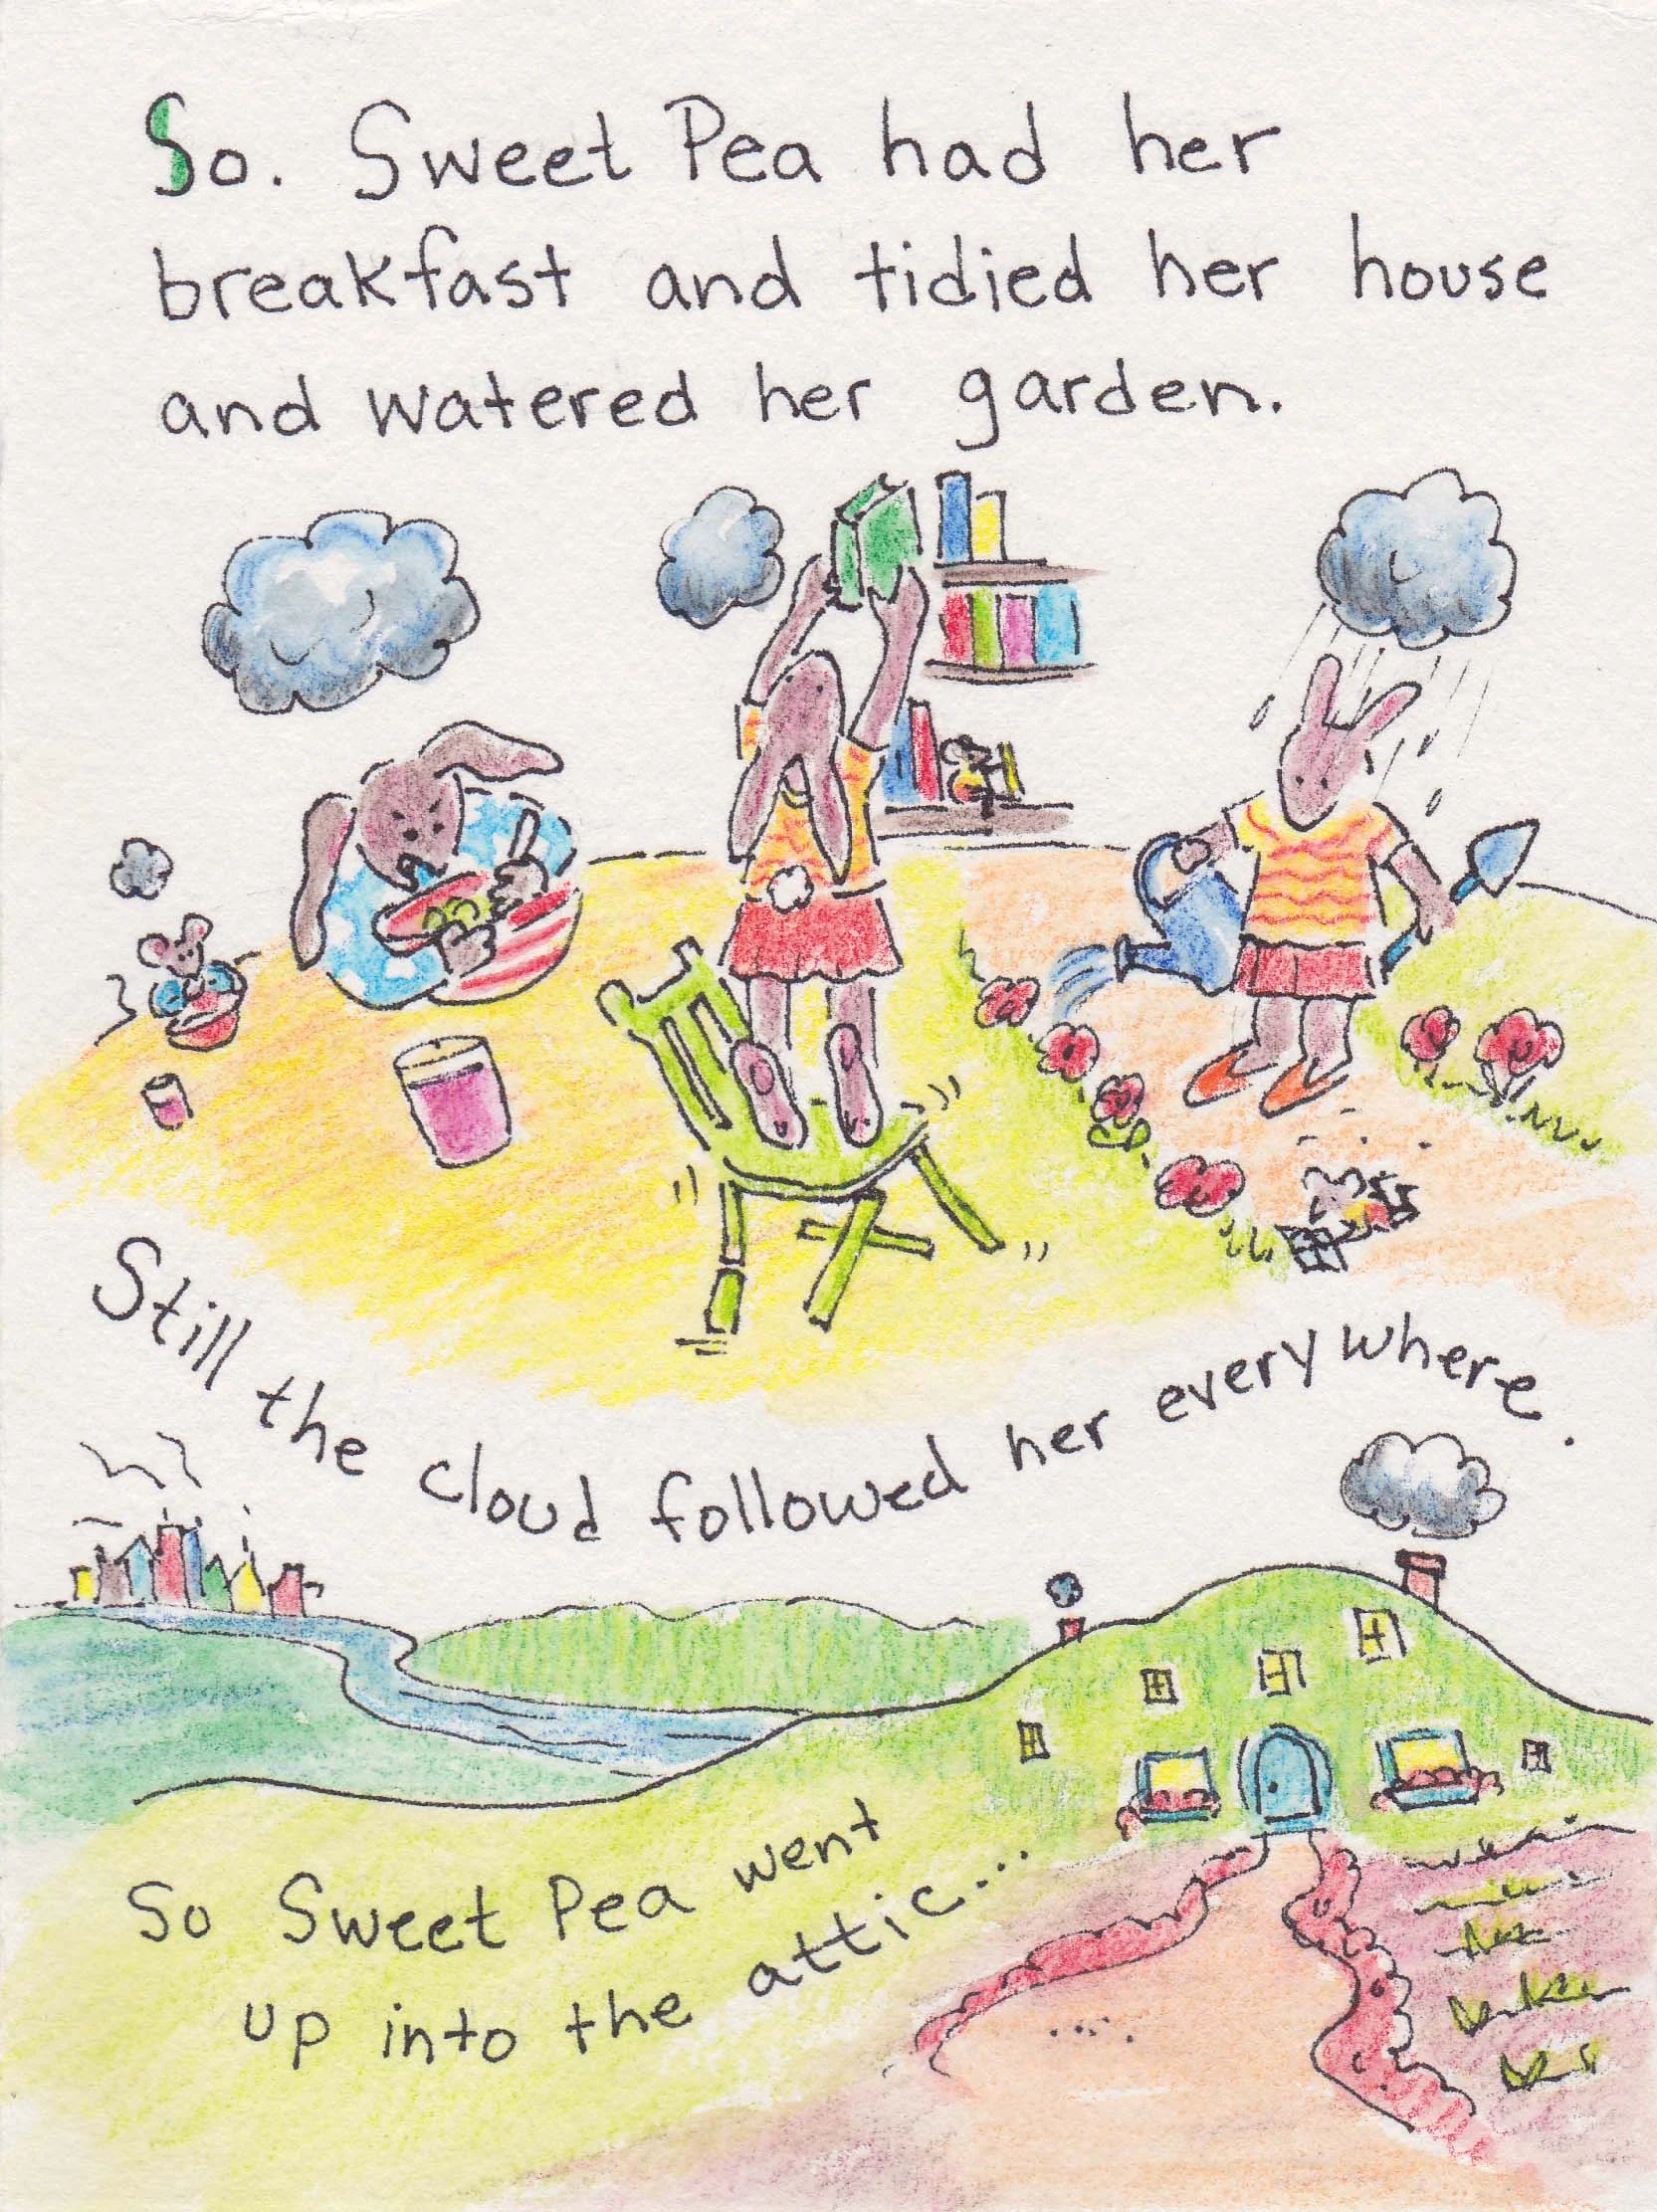 So. Sweet Pea had her
breakfast and tidied her house
and watered her garden.
Still the cloud followed her everywhere.
So Sweet Pea went
up into the attic...